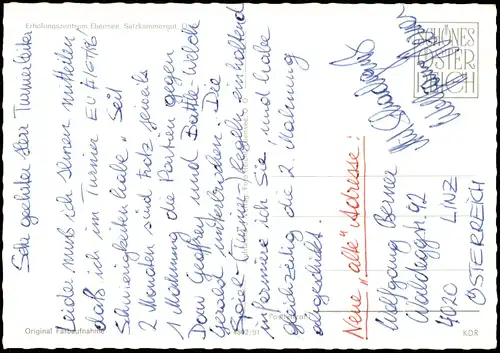 Erholungszentrum Ebensee, Salzkammergut, OÖ
Sehr geehrter Herr Turnierleiter
Leider muß ich Ihnen mitteilen
daß ich im Turnier EU
Schwierigkeiten habe. Seit
2 Monaten sind trotz jeweils
1 Mahnung die Partien gegen
Dom Geoffrey und Battle Welch
Gerald unterbrochen. Die
Spiel- (Turnier-) Regeln einhaltend
informiere ich Sie und habe
gleichzeitig die 2. Mahnung
abgeschickt.
SCHÖNES
ÖSTER
REICH
Mit
Neue "alte" Adresse:
Wolfgang Berner
92
4020 LINZ
ÖSTERREICH
Original Farbaufnahme
KDR